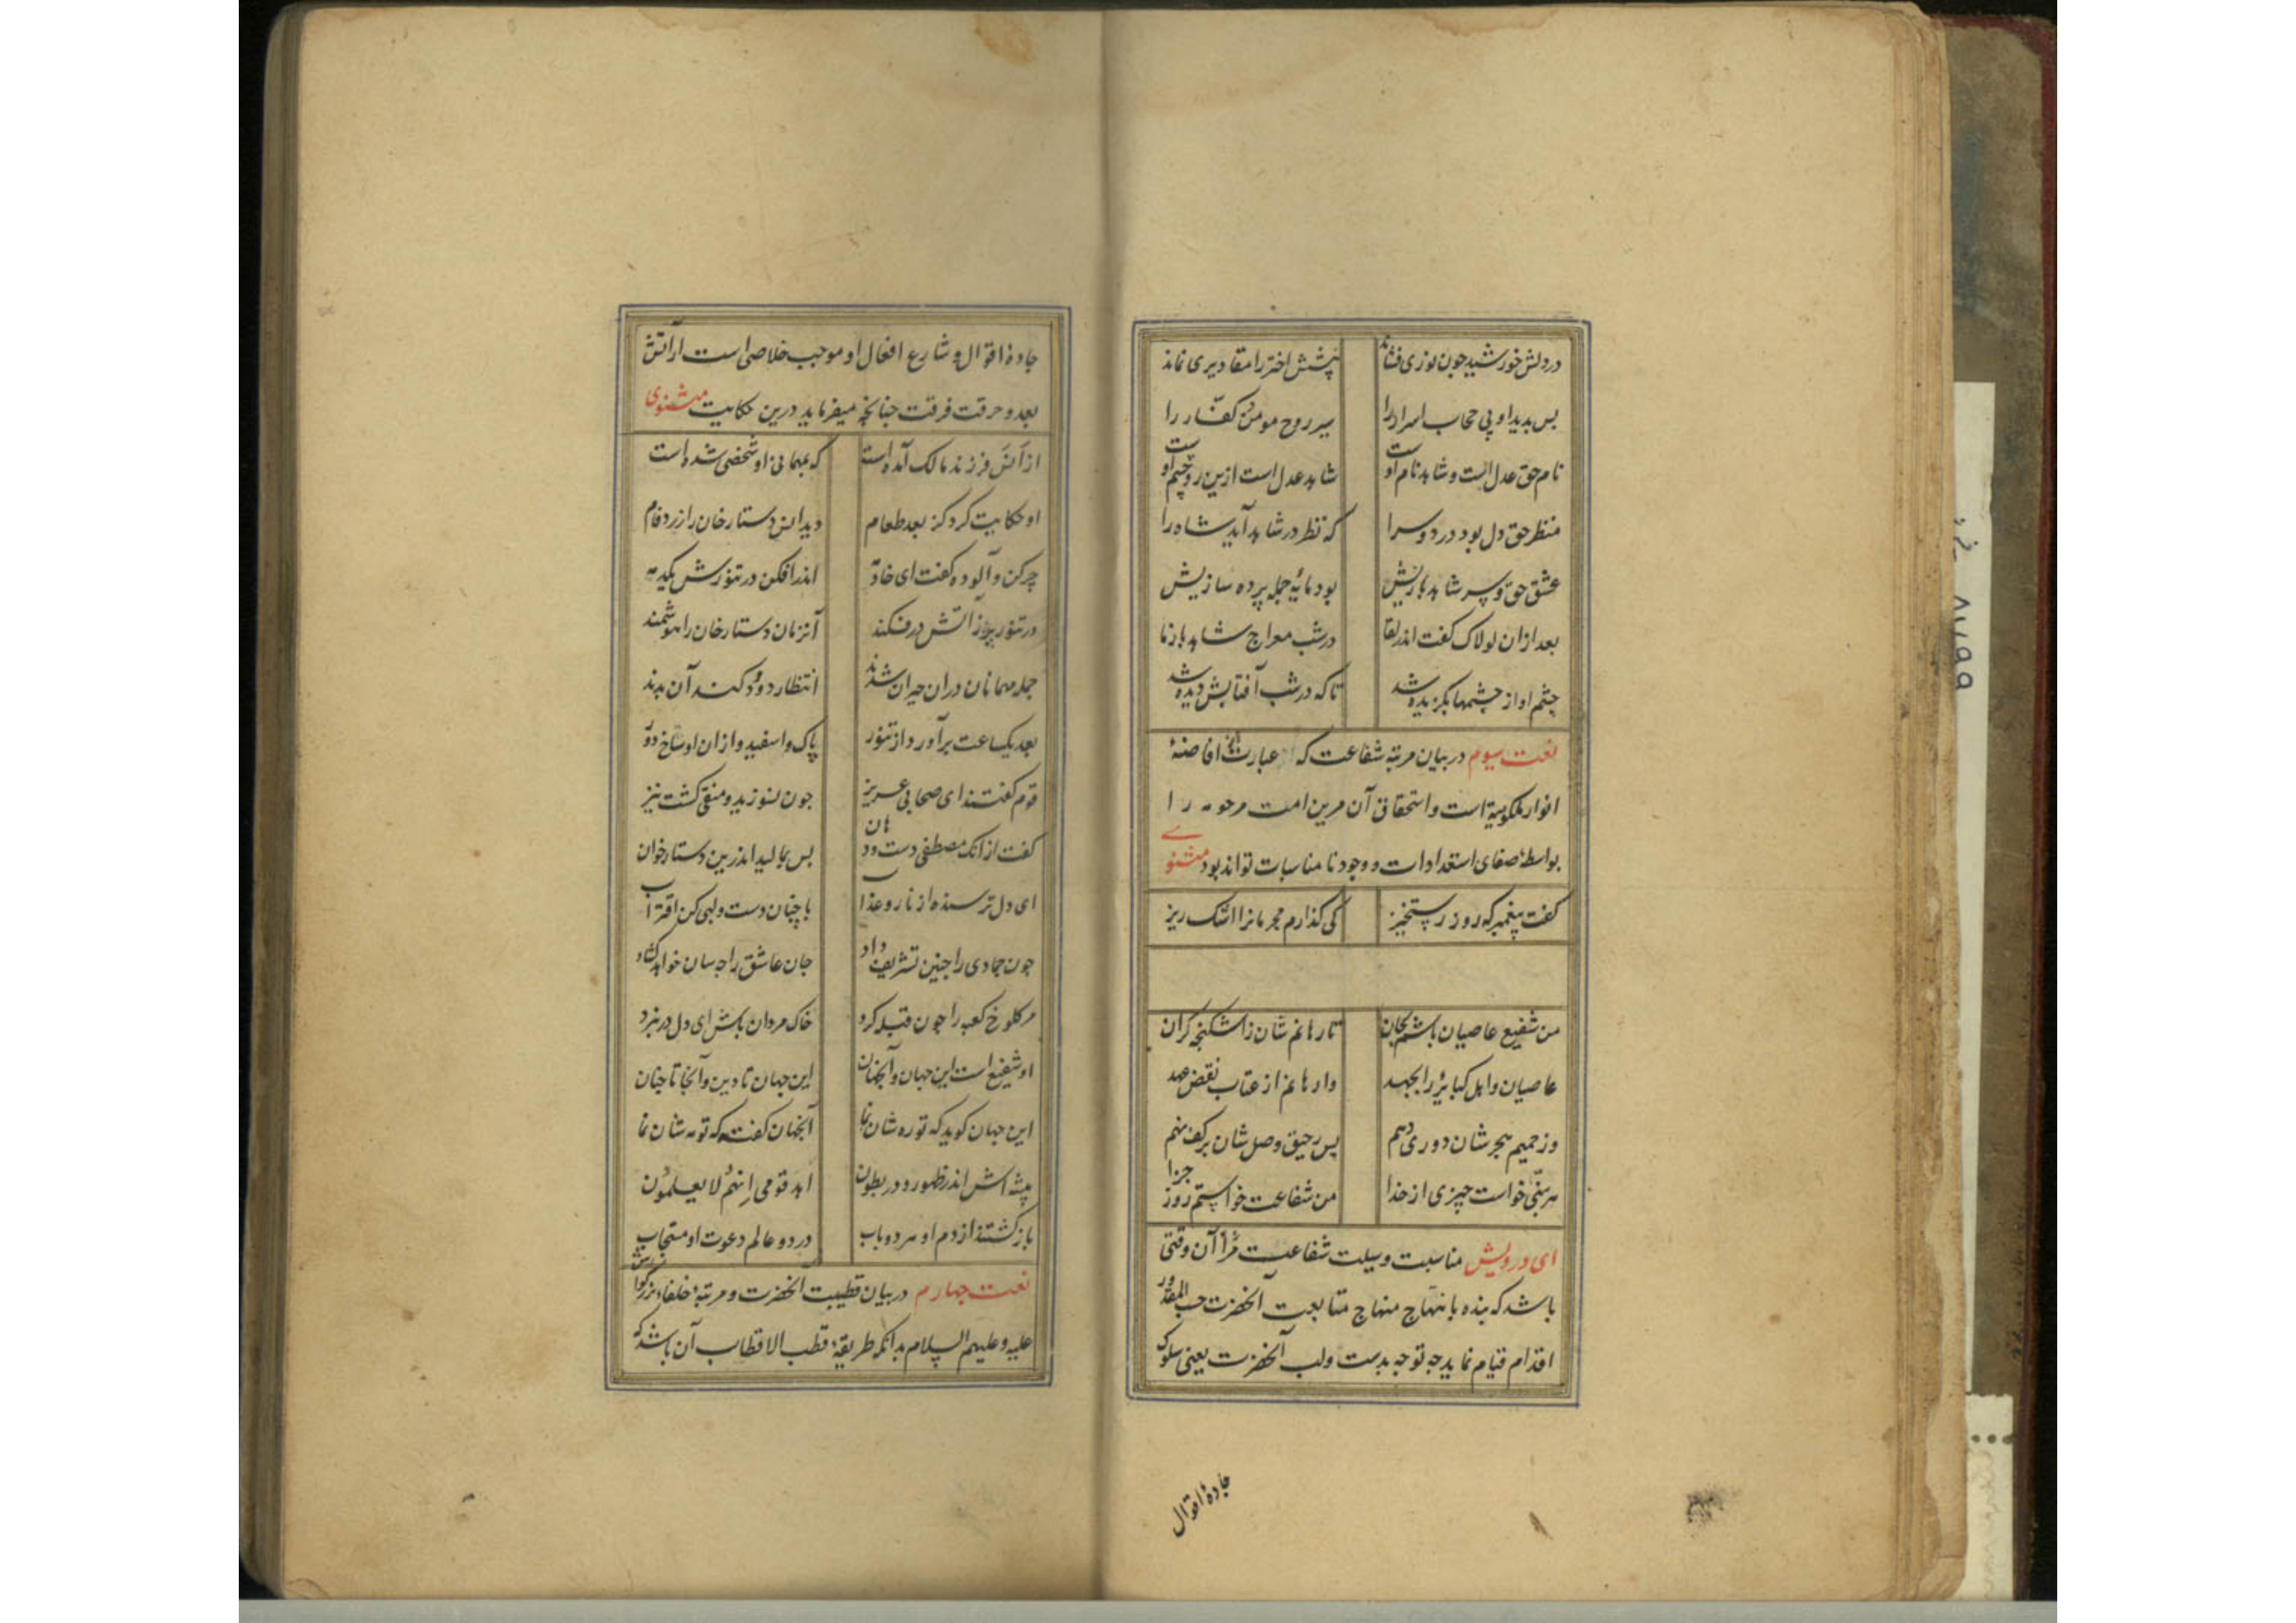 در دلش خورشید چون نوری فشاند پیشش اختر را مقادیری نماند
بس بدید او بی حجاب اسرار را سیر روح مومن و کفّار را
نام حق عدل است و شاهد نام اوست شاهد عدل است ازین رو چشم اوست
منظر حق دل بود در دو سرا که نظر در شاهد آید شاه را
عشق حق و سر شاهد بازیش بود مایهٔ جمله پرده سازیش
بعد ازان لولاک گفت اندر لقا در شب معراج شاهد باز ما
چشم او از چشمها بگزیده شد تا که در شب آفتابش دیده شد
نعت سیوم در بیان مرتبهٔ شفاعت که عبارت از افاضهٔ
انوار ملکوتیة است و استحقاق آن مرین امت مرحومه را
بواسطهٔ صفای استعدادات و وجود نا مناسبات تواند بود مثنوی
کفت پیغمبر که روز رستخیز کی کذارم مجرمانرا اشک ریز
من شفیع عاصیان باشم بجان تا رهانم شان ز اشکنجه کران
عاصیان و اهل کبایر را بجهد وارهانم از عتاب نقض عهد
وز حمیم هجر شان دوری دهم پس رحیق وصل شان بر کف نهم
هر نبّی خواست چیزی از خدا من شفاعت خواستم روز جزا
ای درویش مناسبت وسیلت شفاعت مرا آن وقتی
باشد که بنده بانتهاج منهاج متابعت آنحضرت حسب المقدور
اقدام قیام نماید چه توجه بدست و لب آنحضرت یعنی سلوک
جادهٔ اقوال
جادهٔ اقوال و شارع افعال او موجب خلاصی است از آتش
بعد و حرقت فرقت چنانچه میفرماید درین حکایت مثنوی
از اَنَس فرزند مالک آمده است که بمهمانی او شخصی شده است
او حکایت کرد کز بعد طعام دید انس دستارخان را زرد فام
چرکن و آلوده کفت ای خادمه اندر افکن در تنورش یکدمه
در تنور پر ز آتش در فکند آنزمان دستارخان را هوشمند
جمله مهمانان دران حیران شدند انتظار دود کندآن بدند
بعد یکساعت برآورد از تنور پاک و اسفید و ازان اوساخ دور
قوم کفتند ای صحابی عزیز چون نسوزید و منقی کشت نیز
کفت از انک مصطفی دست و دهان بس بمالید اندرین دستارخوان
ای دل ترسنده از نار و عذاب با چنان دست و لبی کن اقتراب
چون جمادی را چنین تشریف داد جان عاشق را چه سان خواهد کشاد
مر کلوخ کعبه را چون قبله کرد خاک مردان باش ای دل در نبرد
او شفیع است این جهان و آنجهان این جهان تا دین و آنجا تا جنان
این جهان کوید که تو ره شان نما آنجهان کفت که تو مه شان نما
پیشه اش اندر ظهور و در بطون اهد قومی اِنّهُم لا یعلمُون
باز کشته از دم او هر دو باب در دو عالم دعوت او مستجاب
نعت چهارم در بیان قطبیت آنحضرت و مرتبهٔ خلفاء بزرگوارش
علیه و علیهم السلام بدانکه طریقهٔ قطب الاقطاب آن باشد که
۸۷۹۹